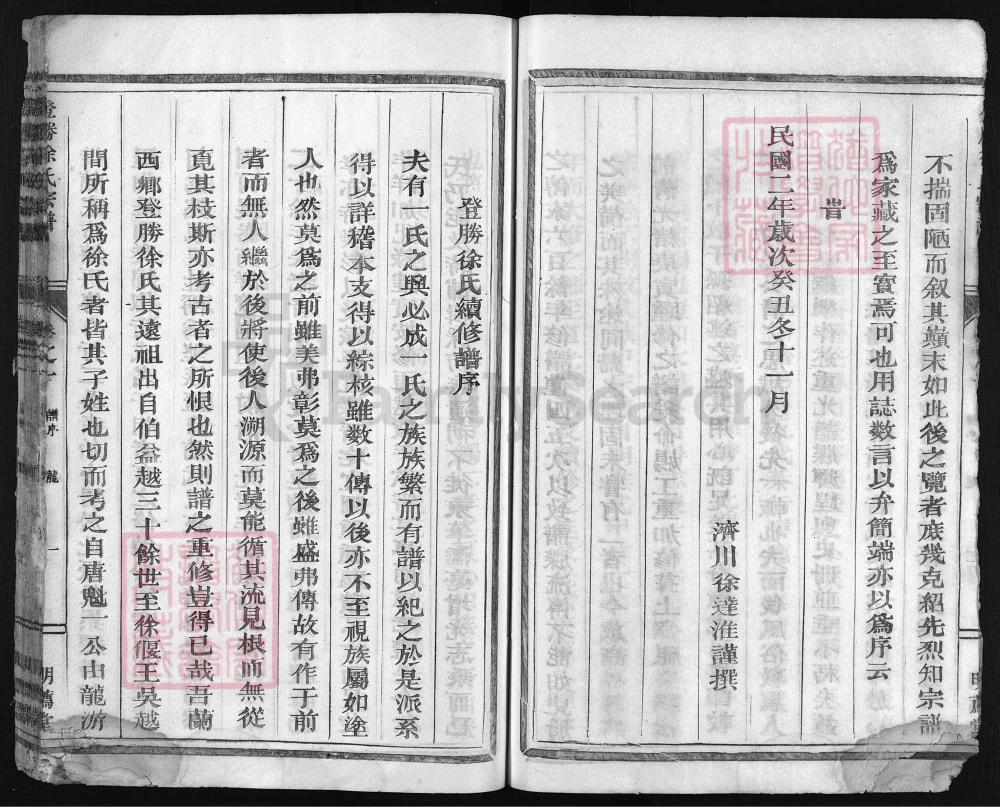 不揣固陋而叙其巔末如此後之覽者庶幾克紹先烈知宗譜
爲家藏之至寳焉可也用誌数言以弁簡端亦以爲序云
旹
民國二年歲次癸丑冬十一月
濟川徐達淮謹撰
登勝徐氏續修譜序
夫有一氏之興必成一氏之族族繁而有譜以紀之於是派系
得以詳稽本支得以綜核雖数十傳以後亦不至視族屬如塗
人也然莫爲之前雖美弗彰莫爲之後雖盛弗傳故有作于前
者而無人繼於後將使後人溯源而莫能循其流見根而無從
覓其枝斯亦考古者之所恨也然則譜之重修豈得已哉吾蘭
西鄉登勝徐氏其遠祖出自伯益越三十餘世至徐偃王吳越
間所稱爲徐氏者皆其子姓也切而考之自唐魁一公由龍游
登勝徐氏宗譜 卷之一 譜序 龍 一 明蔦堂
FamilySearch